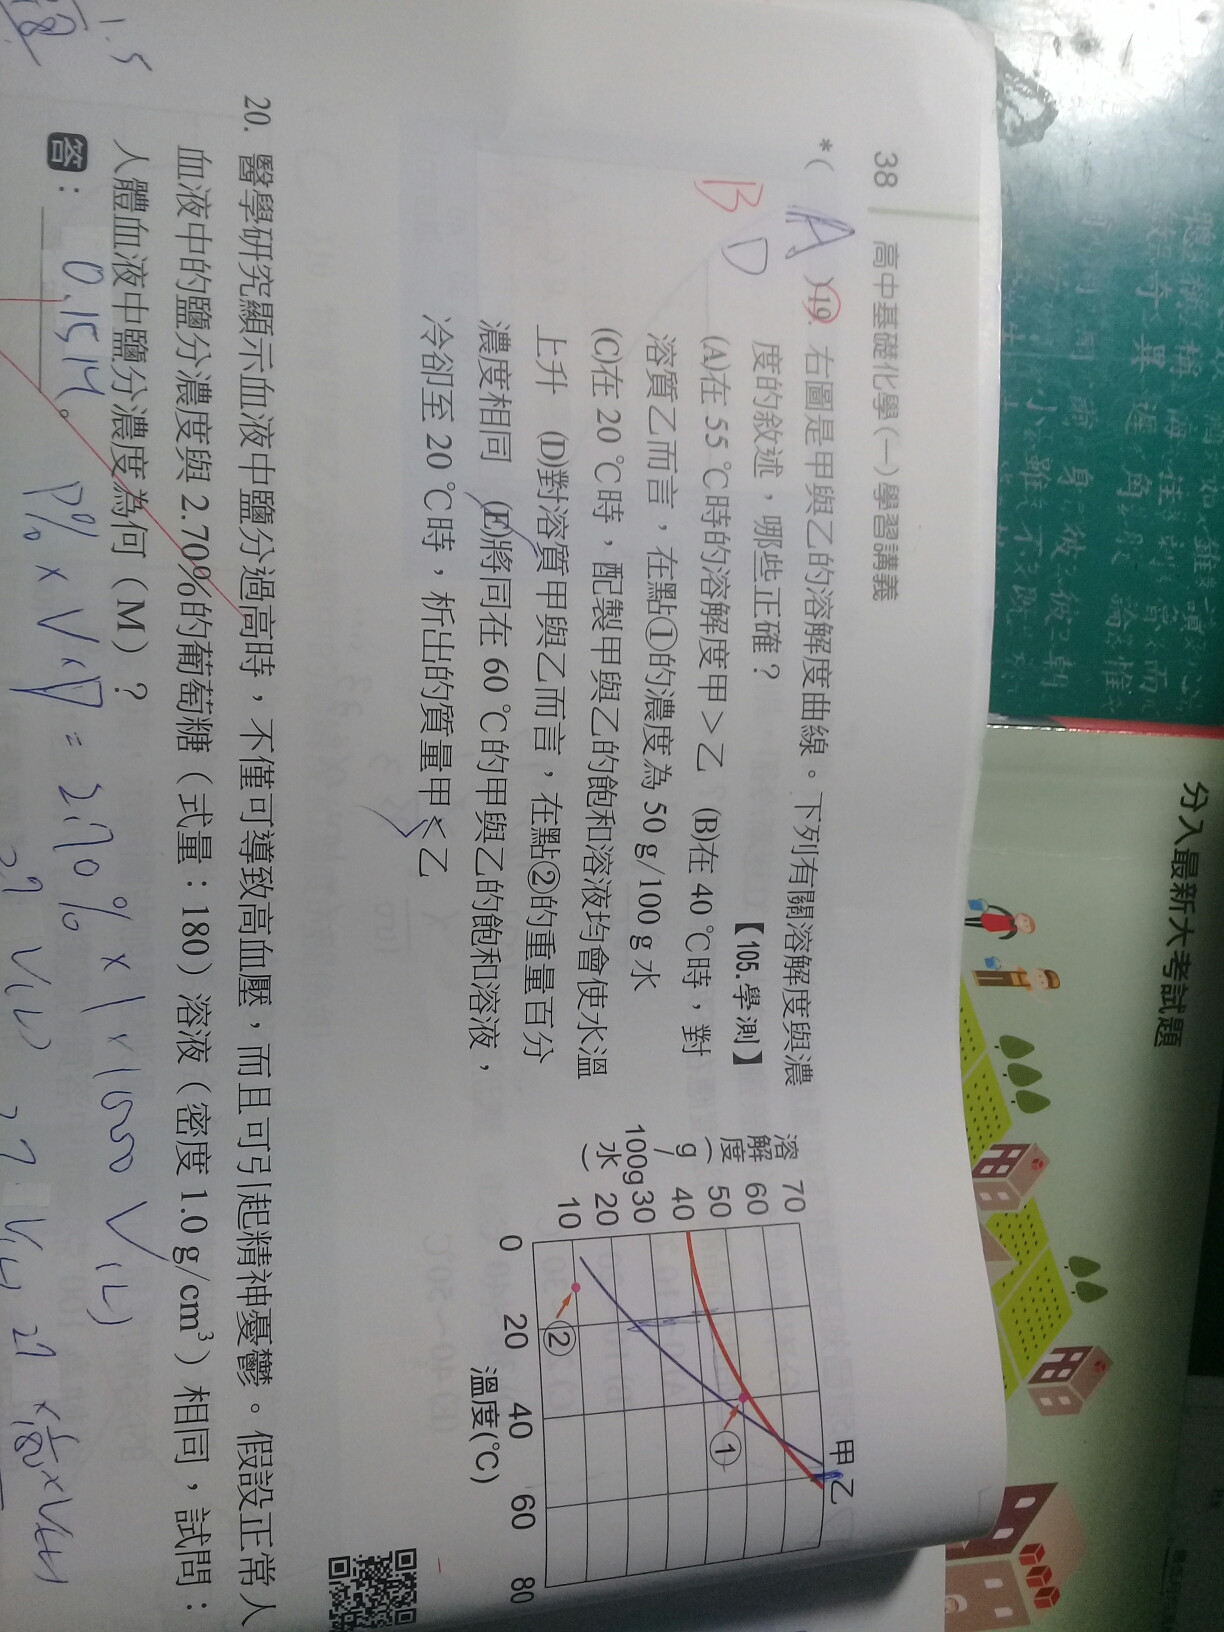 38 高中基礎化學(一)學習講義
*( A )19. 右圖是甲與乙的溶解度曲線。下列有關溶解度與濃
B D
度的敘述，哪些正確？ 【105.學測】
(A)在 55 ℃時的溶解度甲＞乙 (B)在 40 ℃時，對
溶質乙而言，在點①的濃度為 50 g/100 g 水
(C)在 20 ℃時，配製甲與乙的飽和溶液均會使水溫
上升 (D)對溶質甲與乙而言，在點②的重量百分
濃度相同 (E)將同在 60 ℃的甲與乙的飽和溶液，
冷卻至 20 ℃時，析出的質量甲＜乙
溶解度(g/100g水)
70
60
50
40
30
20
10
甲
乙
①
②
0 20 40 60 80
溫度(℃)
20. 醫學研究顯示血液中鹽分過高時，不僅可導致高血壓，而且可引起精神憂鬱。假設正常人
血液中的鹽分濃度與 2.70%的葡萄糖（式量：180）溶液（密度 1.0 g/cm³）相同，試問：
人體血液中鹽分濃度為何（M）？
答：0.15M。
P% × V × D = 2.70% × 1 × 1000 V(L)
27 V(L)
27 × 1/180 × V(L)
1.5
分入最新大考試題